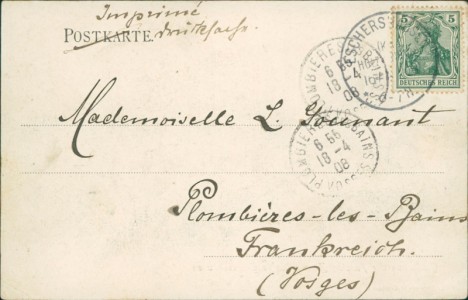 Imprimé
POSTKARTE. Drucksache
5 5
DEUTSCHES REICH
PLOMBIÈRES
6 55
18 -4
08
PLOMBIÈRES-LES-BAINS
6 55
18 -4
08
VOSGES
Mademoiselle L.
Plombières-les-Bains
Frankreich.
(Vosges)